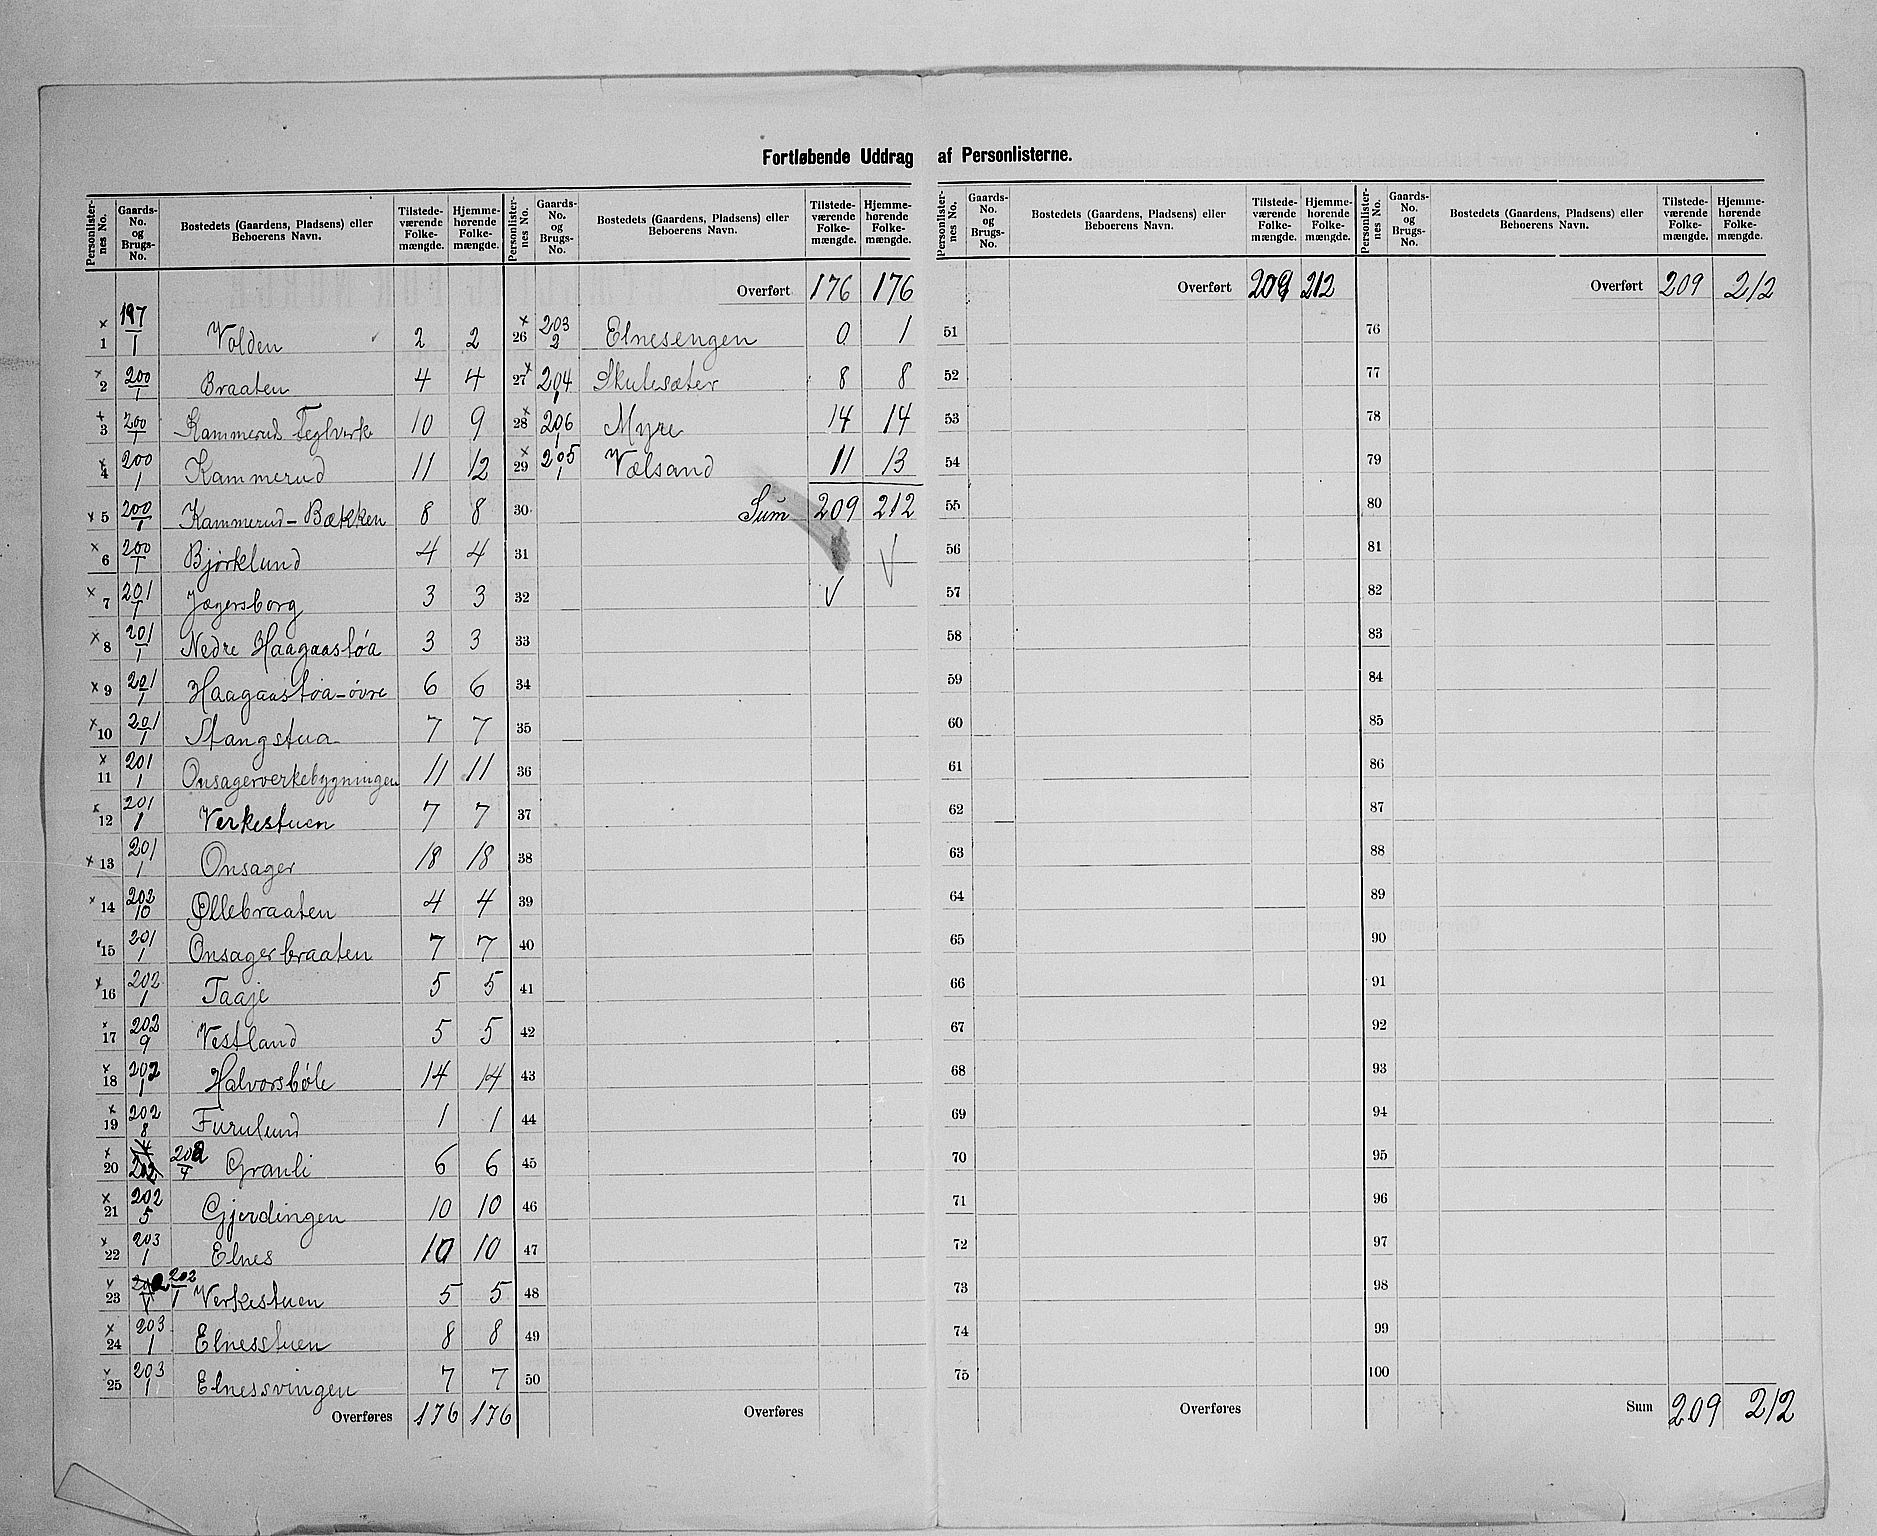 Fortløbende Uddrag af Personlisterne.
Personlister-nes No. Gaards-No. og Brugs-No. Bostedets (Gaardens, Pladsens) eller Beboerens Navn. Tilstede-værende Folke-mængde. Hjemme-hørende Folke-mængde.
1 197/1 Volden 2 2
2 200/1 Braaten 4 4
3 200/1 Kammerud Teglverk 10 9
4 200/1 Kammerud 11 12
5 200/1 Kammerud-Bækken 8 8
6 200/1 Bjørklund 4 4
7 201/1 Jægersborg 3 3
8 201/1 Nedre Haagaasløa 3 3
9 201/1 Haagaasløa-øvre 6 6
10 201/1 Stangstua 7 7
11 201/1 Onsagerverkebygningen 11 11
12 201/1 Verkestuen 7 7
13 201/1 Onsager 18 18
14 202/10 Øllebraaten 4 4
15 201/1 Onsagerbraaten 7 7
16 202/1 Taaje 5 5
17 202/9 Vestland 5 5
18 202/1 Halvorsbøle 14 14
19 202/8 Furulund 1 1
20 202/4 Granli 6 6
21 202/5 Gjerdingen 10 10
22 203/1 Elnes 10 10
23 202/1 Verkestuen 5 5
24 203/1 Elnesstuen 8 8
25 203/1 Elnessvingen 7 7
Overføres 176 176
Personlister-nes No. Gaards-No. og Brugs-No. Bostedets (Gaardens, Pladsens) eller Beboerens Navn. Tilstede-værende Folke-mængde. Hjemme-hørende Folke-mængde.
Overført 176 176
26 203/2 Elnesengen 0 1
27 204/1 Skutesæter 8 8
28 206/1 Myre 14 14
29 205/1 Vælsand 11 13
30 Sum 209 212
31
32
33
34
35
36
37
38
39
40
41
42
43
44
45
46
47
48
49
50
Overføres
Personlister-nes No. Gaards-No. og Brugs-No. Bostedets (Gaardens, Pladsens) eller Beboerens Navn. Tilstede-værende Folke-mængde. Hjemme-hørende Folke-mængde.
Overført 209 212
51
52
53
54
55
56
57
58
59
60
61
62
63
64
65
66
67
68
69
70
71
72
73
74
75
Overføres
Personlister-nes No. Gaards-No. og Brugs-No. Bostedets (Gaardens, Pladsens) eller Beboerens Navn. Tilstede-værende Folke-mængde. Hjemme-hørende Folke-mængde.
Overført 209 212
76
77
78
79
80
81
82
83
84
85
86
87
88
89
90
91
92
93
94
95
96
97
98
99
100
Sum 209 212